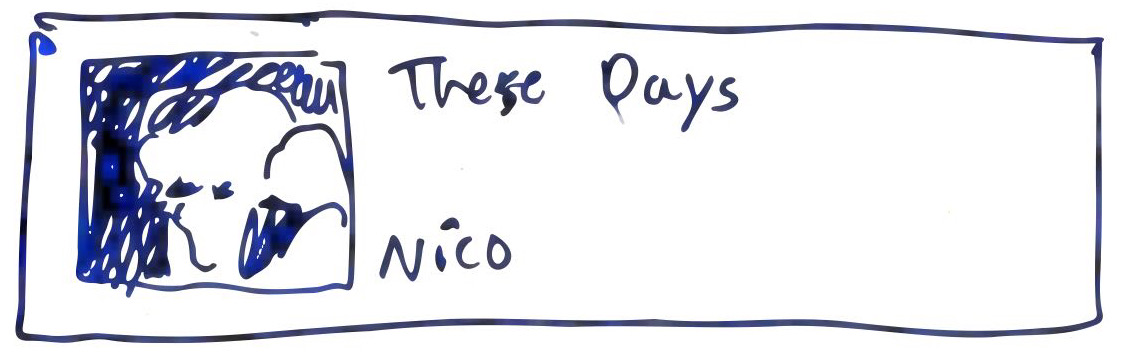 These Days
Nico